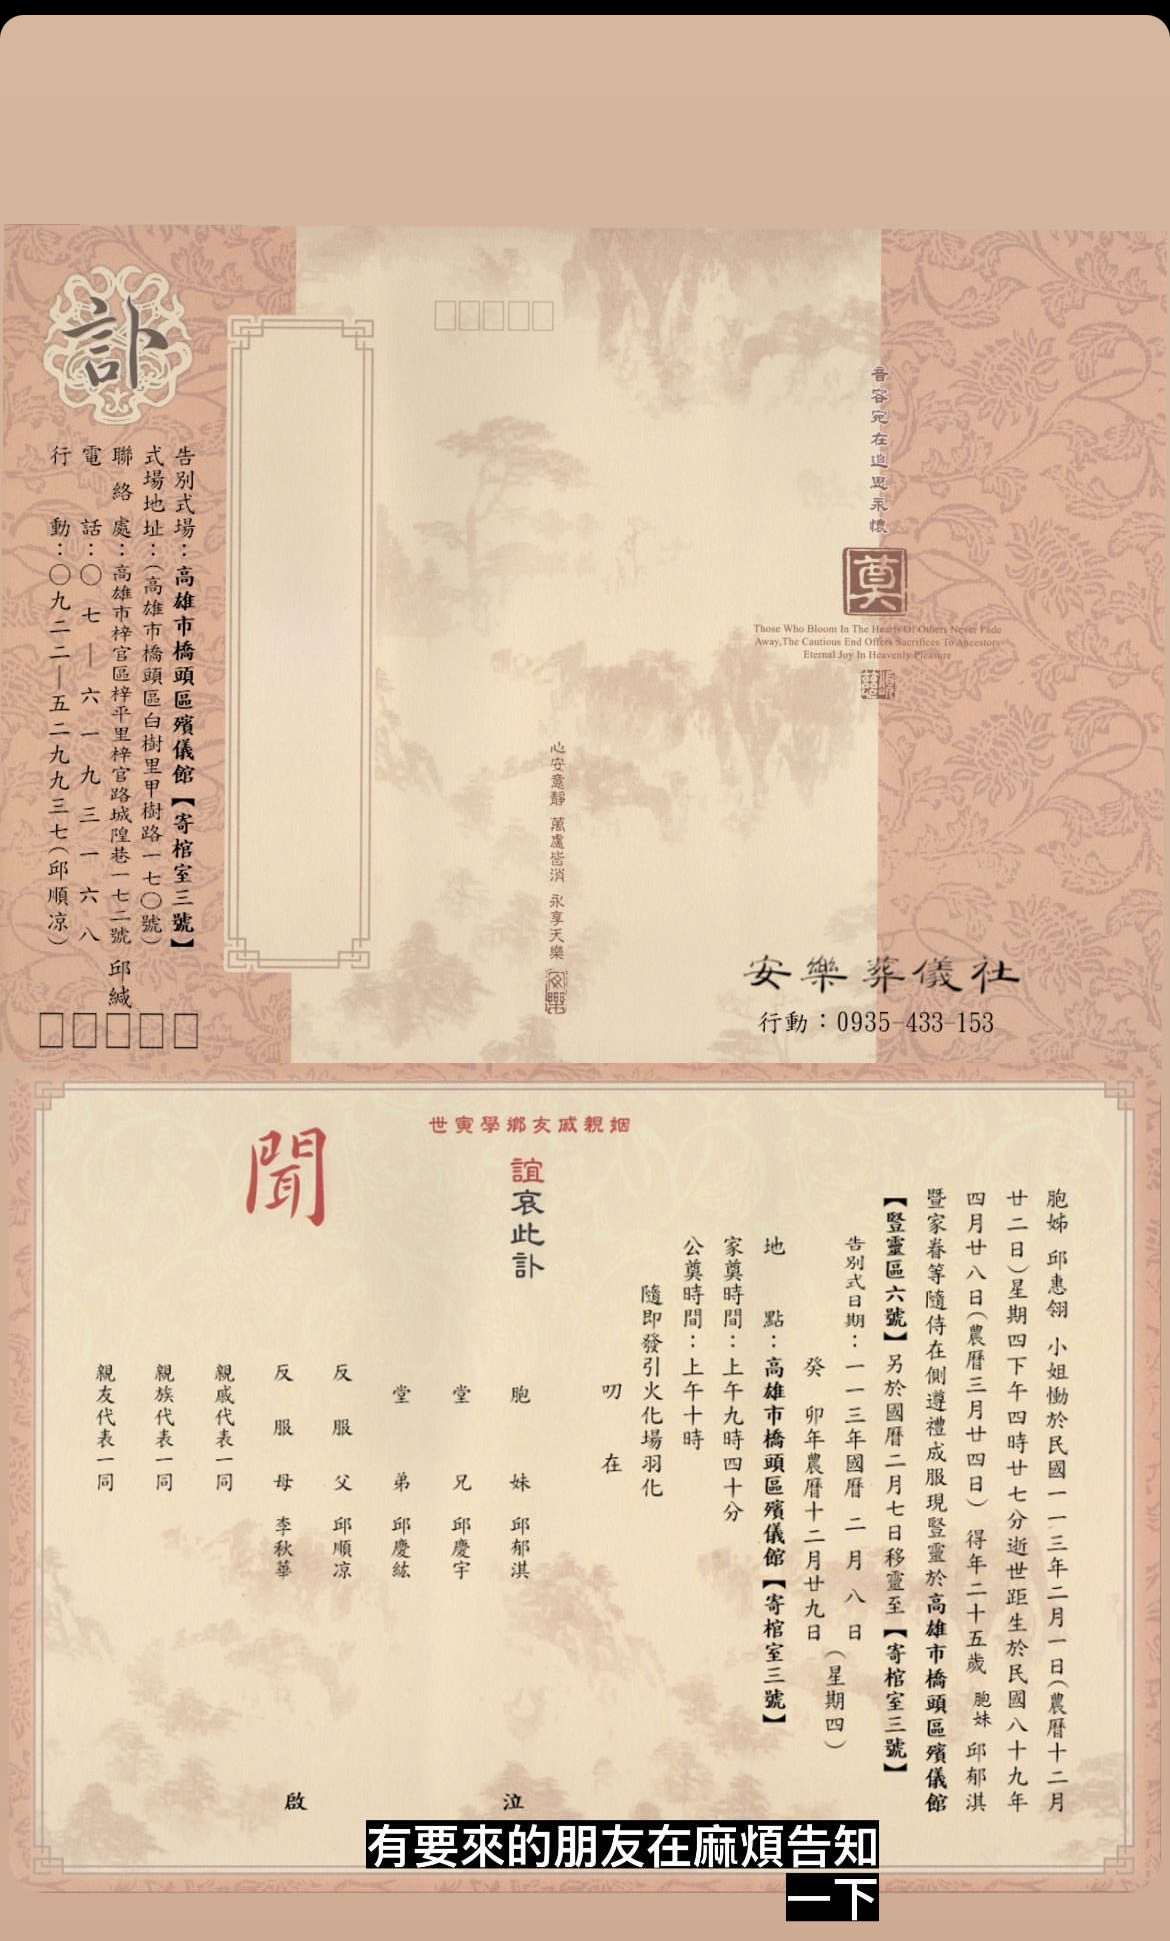 訃
告別式場：高雄市橋頭區殯儀館【寄棺室三號】
式場地址：（高雄市橋頭區白樹里甲樹路一七〇號）
聯絡處：高雄市梓官區梓平里梓官路城隍巷一七二號 邱緘
電話：〇七—六一九三一六八
行動：〇九二二—五二九九三七（邱順凉）
音容宛在追思永懷
奠
Those Who Bloom In The Hearts Of Others Never Fade
Away,The Cautious End Offers Sacrifices To Ancestors
Eternal Joy In Heavenly Pleasure
心安意靜 萬慮皆消 永享天樂
安樂葬儀社
行動：0935-433-153
胞姊 邱惠翎 小姐慟於民國一一三年二月一日（農曆十二月
廿二日）星期四下午四時廿七分逝世距生於民國八十九年
四月廿八日（農曆三月廿四日） 得年二十五歲 胞妹 邱郁淇
暨家眷等隨侍在側遵禮成服現豎靈於高雄市橋頭區殯儀館
【豎靈區六號】另於國曆二月七日移靈至【寄棺室三號】
告別式日期：一一三年國曆 二 月 八 日
癸 卯年農曆十二月廿九日
（星期四）
地 點：高雄市橋頭區殯儀館【寄棺室三號】
家奠時間：上午九時四十分
公奠時間：上午十時
隨即發引火化場羽化
叨 在
世寅學鄉友戚親姻
誼哀此訃
聞
胞 妹 邱郁淇
堂 兄 邱慶宇
堂 弟 邱慶紘
反 服 父 邱順凉
反 服 母 李秋華
親戚代表一同
親族代表一同
親友代表一同
泣
啟
有要來的朋友在麻煩告知
一下